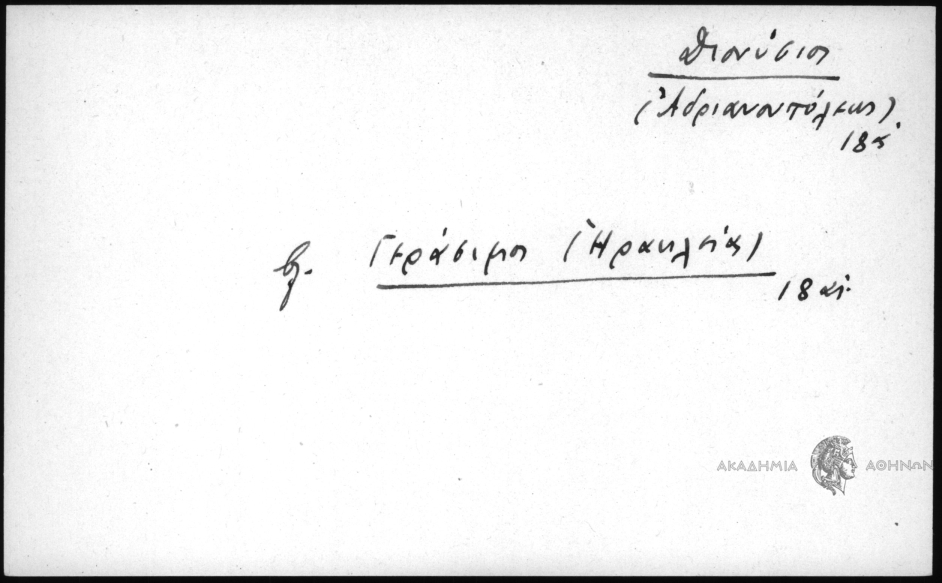 Διονύσιος
(Ἀδριανουπόλεως)
18 αἰ.
βλ. Γεράσιμος (Ἡρακλείας)
18 αἰ.
ΑΚΑΔΗΜΙΑ ΑΘΗΝΩΝ